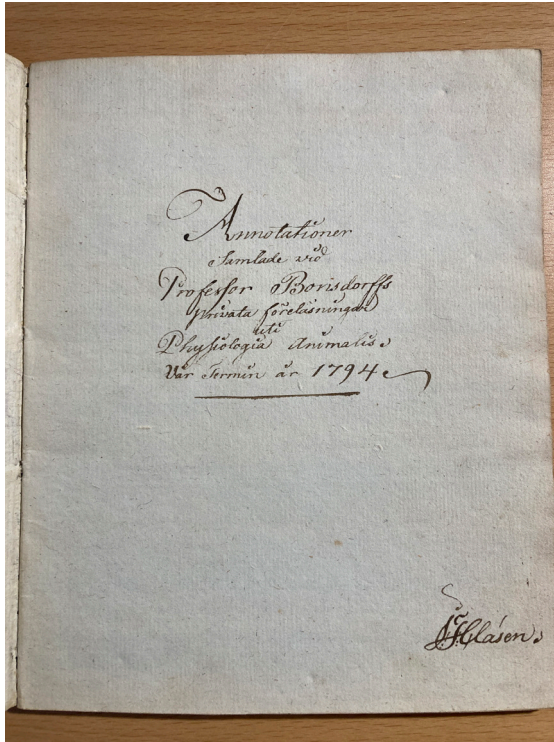 Annotationer
Samlade vid
Professor Bonsdorffs
privata föreläsningar
uti
Physiologia Animalis
Vår Termin år 1794
Clásen